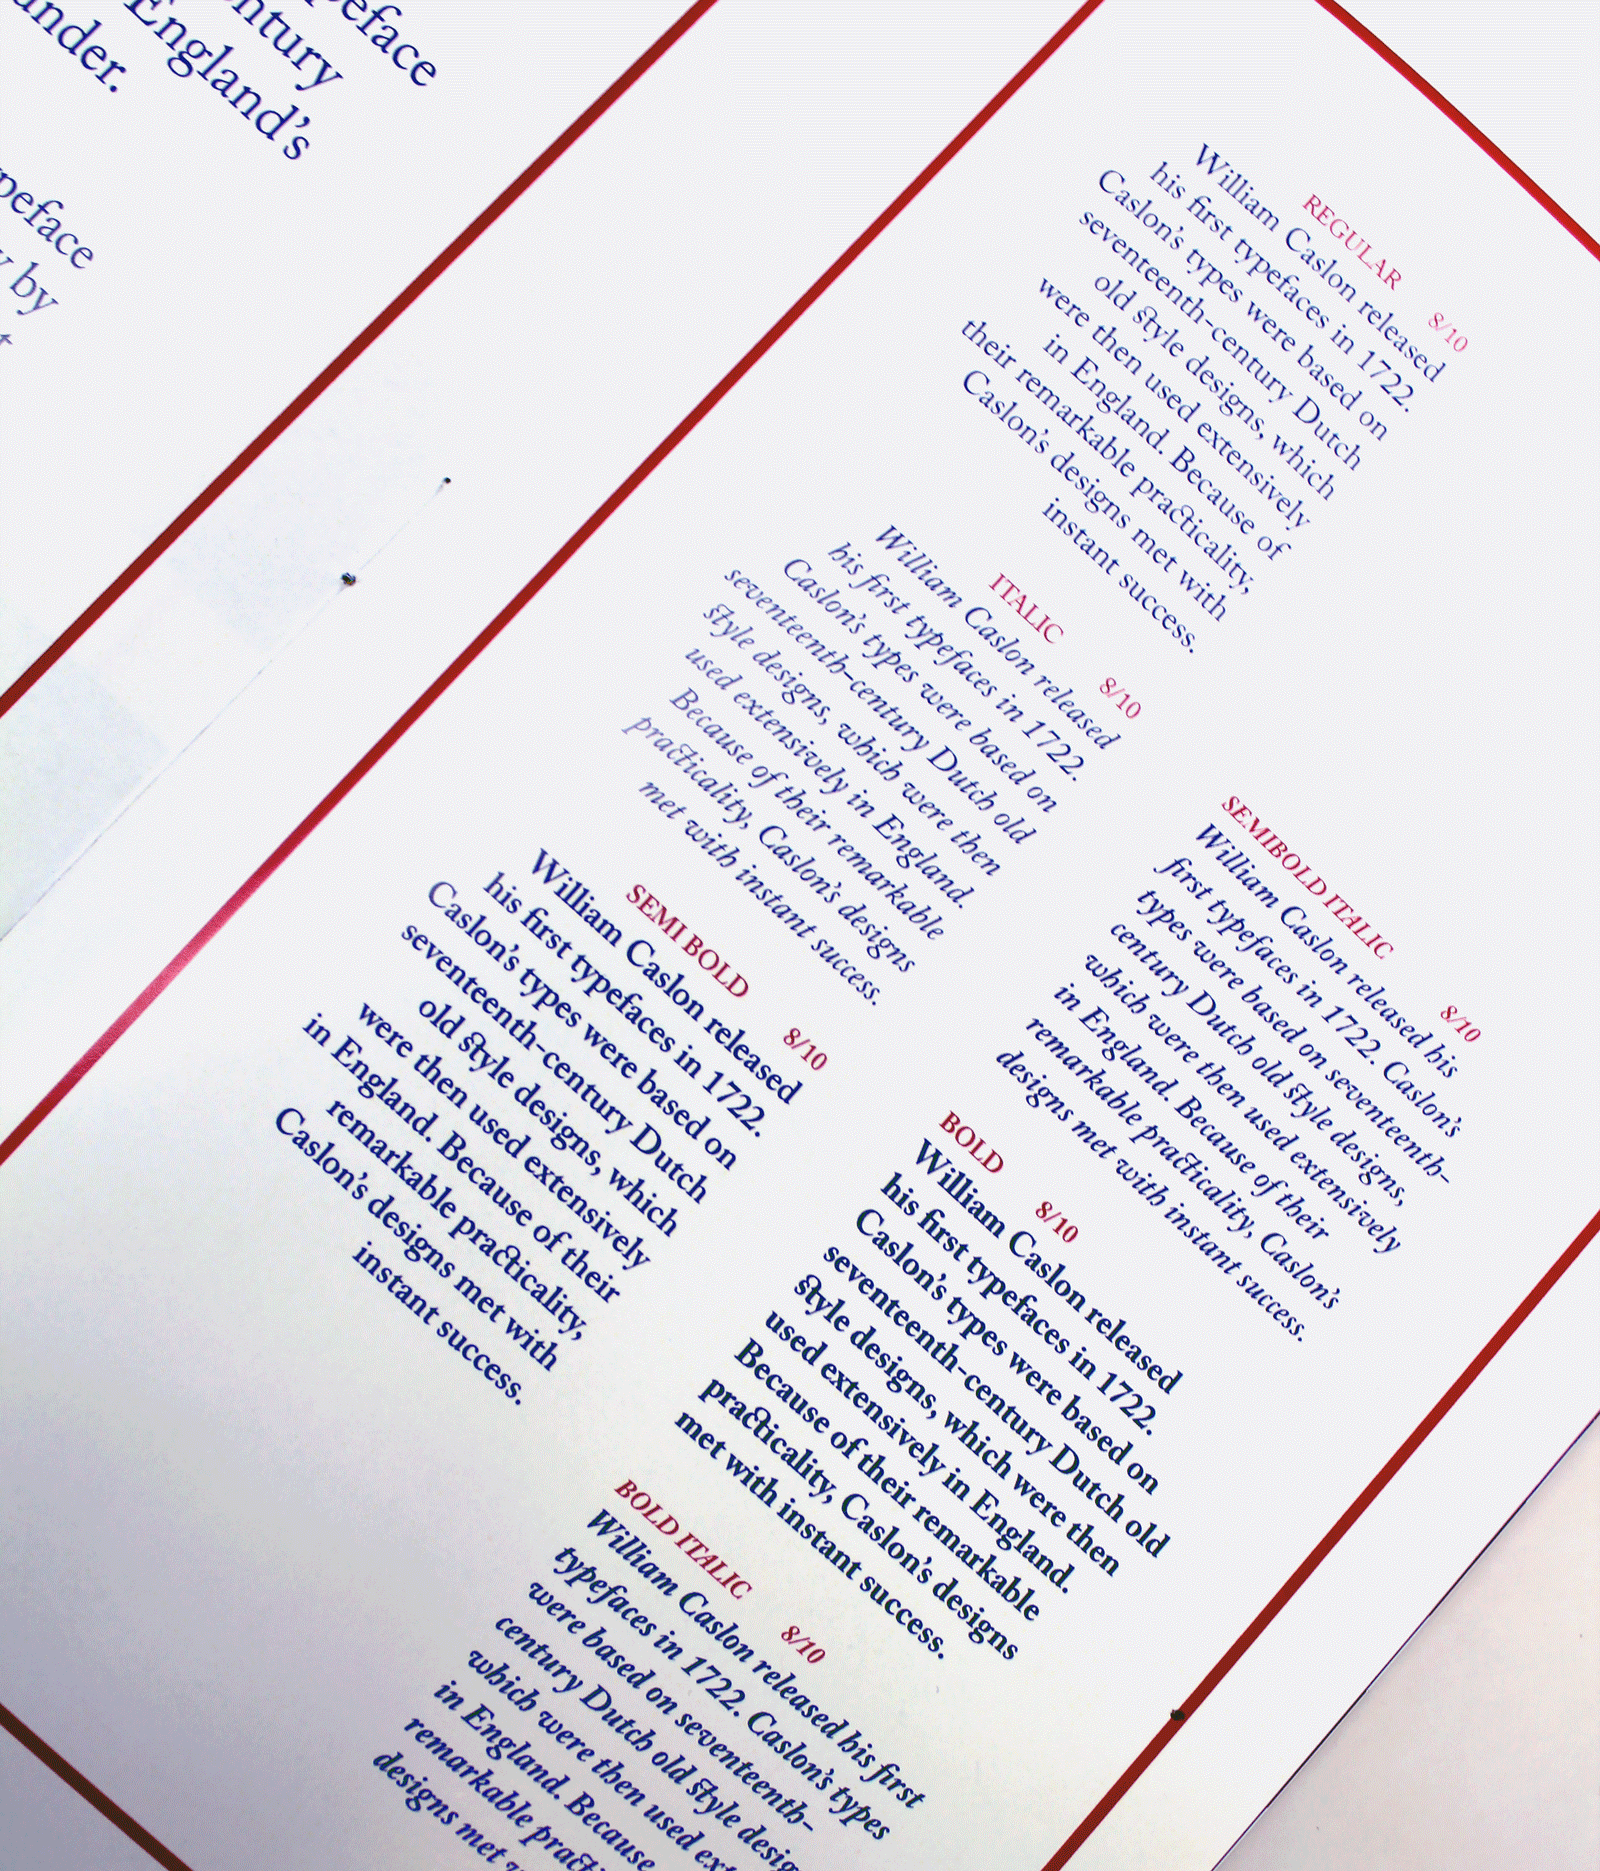 peface
ntury
England's
under.
peface
y by
REGULAR 8/10
William Caslon released
his first typefaces in 1722.
Caslon's types were based on
seventeenth-century Dutch
old style designs, which
were then used extensively
in England. Because of
their remarkable practicality,
Caslon's designs met with
instant success.
ITALIC 8/10
William Caslon released
his first typefaces in 1722.
Caslon's types were based on
seventeenth-century Dutch old
style designs, which were then
used extensively in England.
Because of their remarkable
practicality, Caslon's designs
met with instant success.
SEMI BOLD 8/10
William Caslon released
his first typefaces in 1722.
Caslon's types were based on
seventeenth-century Dutch
old style designs, which
were then used extensively
in England. Because of their
remarkable practicality,
Caslon's designs met with
instant success.
SEMIBOLD ITALIC 8/10
William Caslon released his
first typefaces in 1722. Caslon's
types were based on seventeenth-
century Dutch old style designs,
which were then used extensively
in England. Because of their
remarkable practicality, Caslon's
designs met with instant success.
BOLD 8/10
William Caslon released
his first typefaces in 1722.
Caslon's types were based on
seventeenth-century Dutch old
style designs, which were then
used extensively in England.
Because of their remarkable
practicality, Caslon's designs
met with instant success.
BOLD ITALIC 8/10
William Caslon released his first
typefaces in 1722. Caslon's types
were based on seventeenth-
century Dutch old style desig
which were then used ext
in England. Because
remarkable practi
designs met